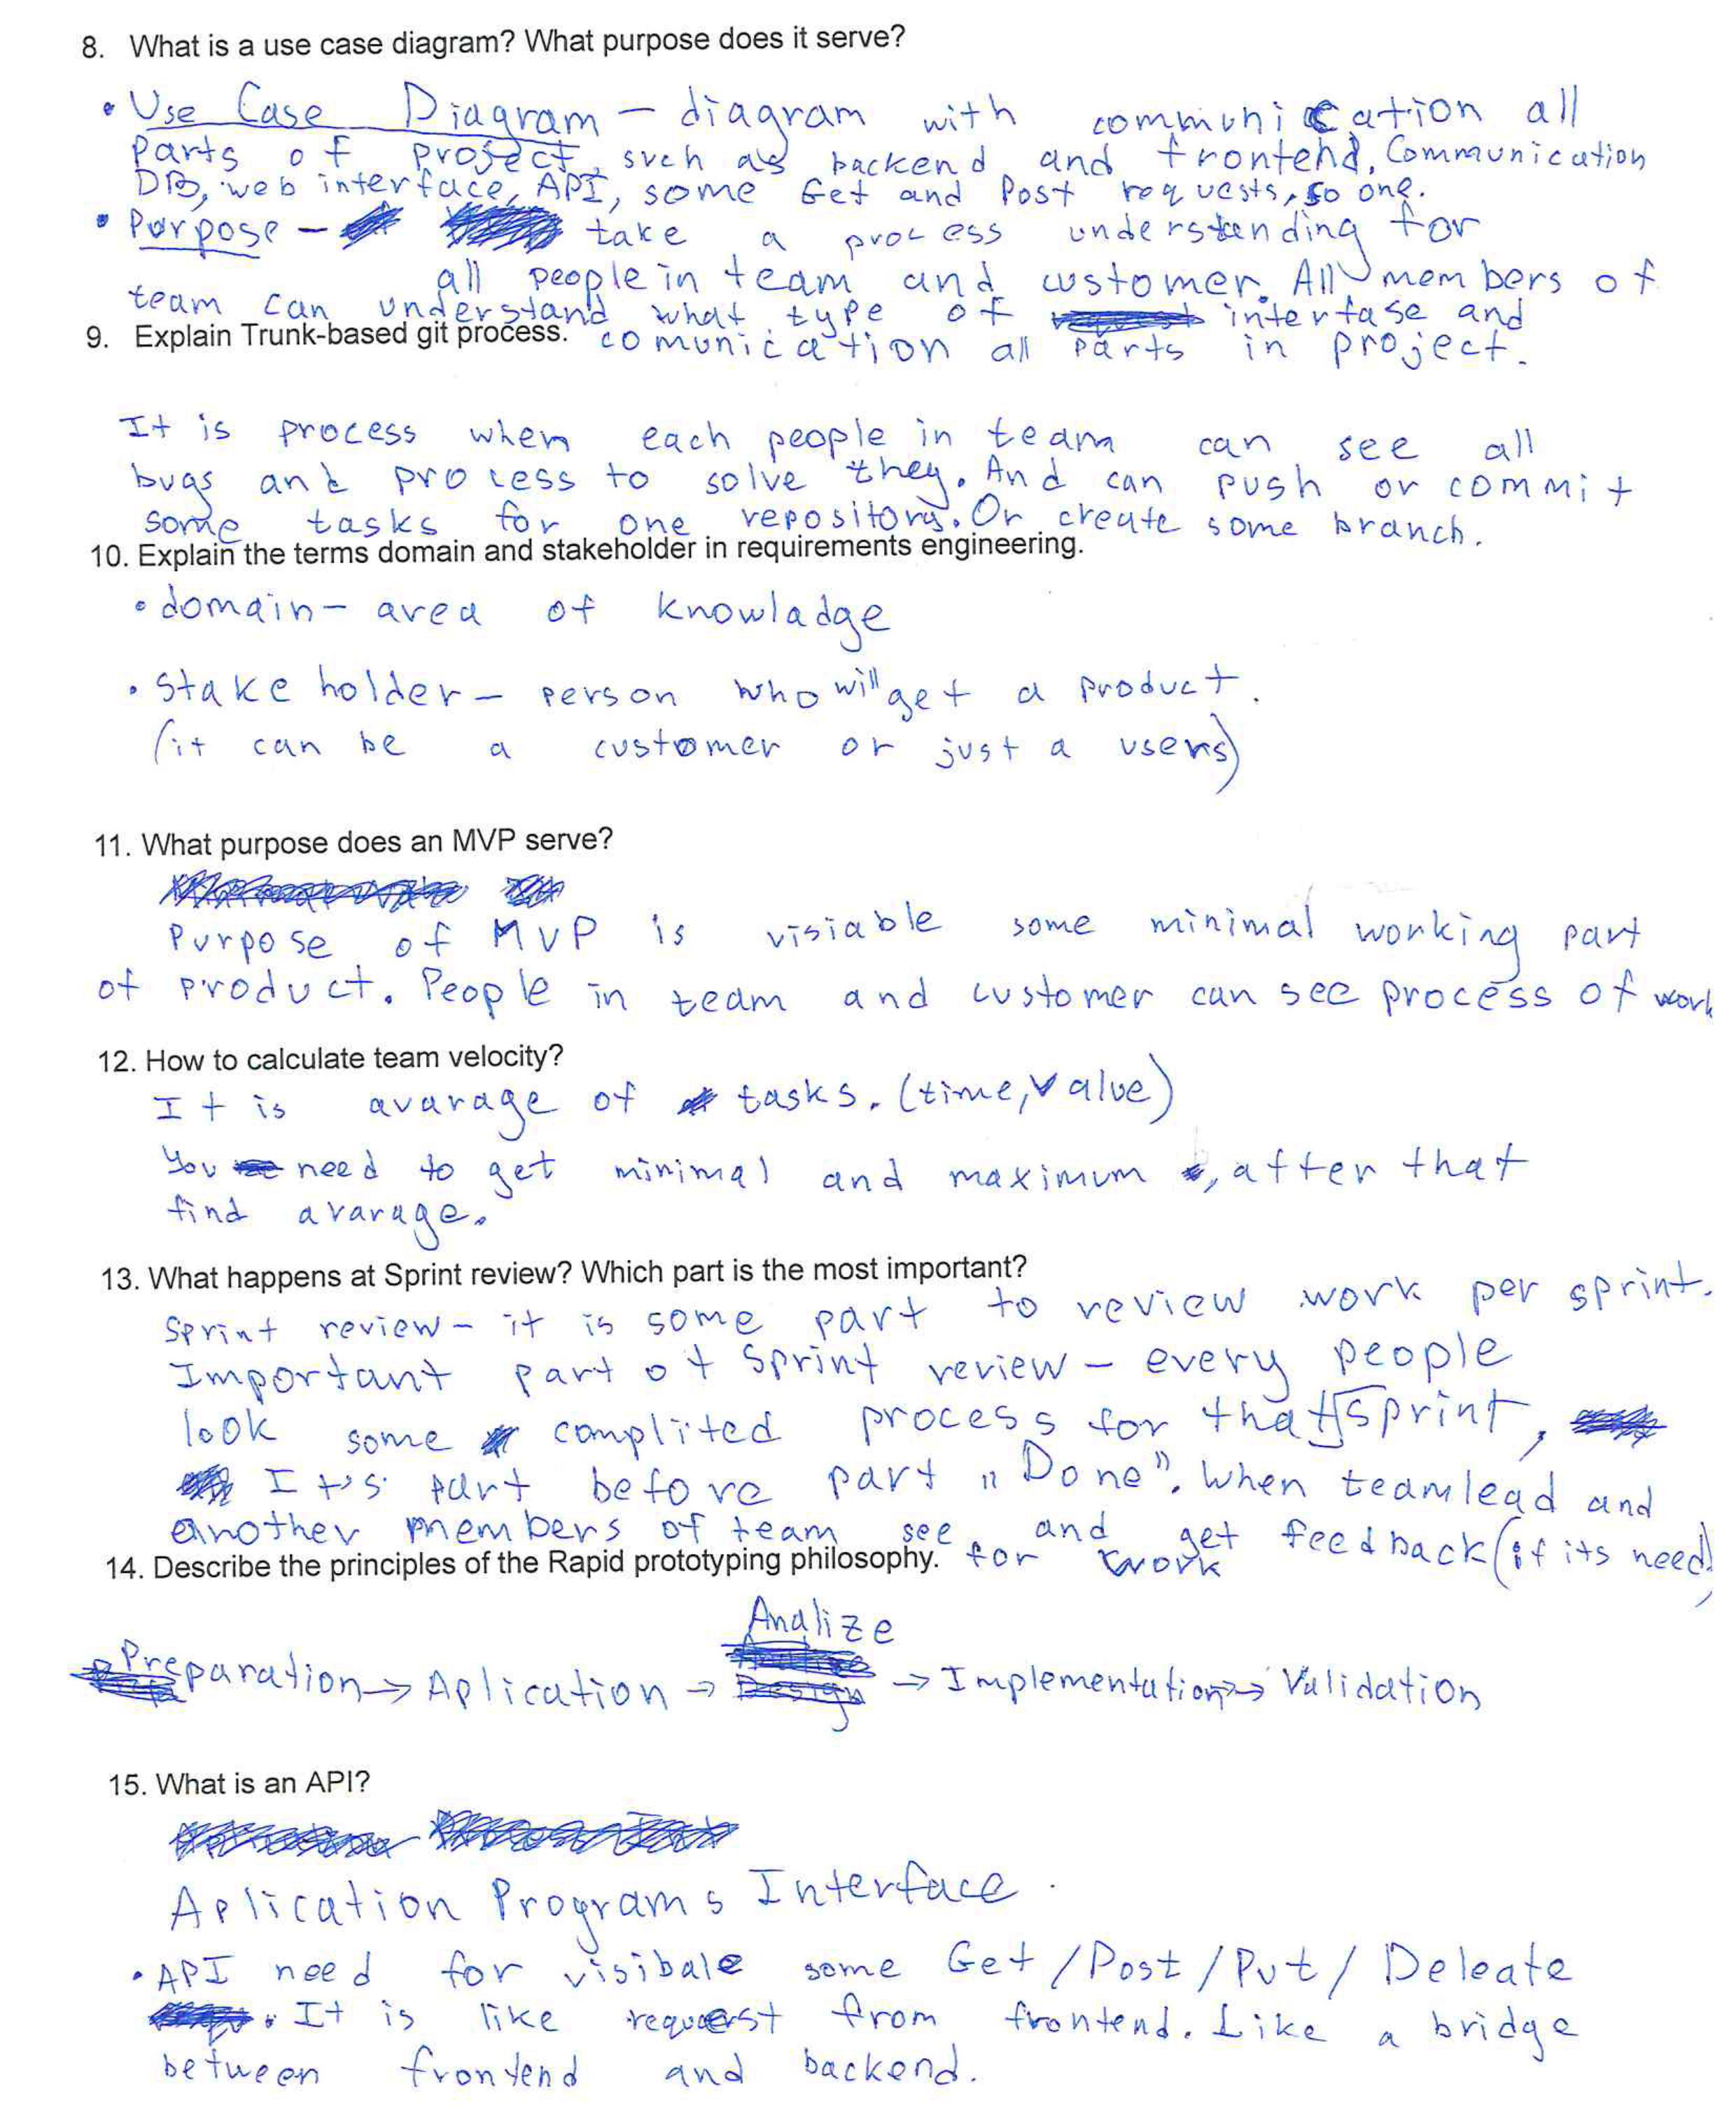 8. What is a use case diagram? What purpose does it serve?
• Use Case Diagram – diagram with communication all
Parts of project, such as backend and frontend, Communication
DB, web interface, API, some Get and Post requests, so one.
• Purpose – take a process understanding for
all people in team and customer. All members of
team can understand what type of interfase and
comunication all parts in project.
9. Explain Trunk-based git process.
It is process when each people in team can see all
bugs and process to solve they. And can push or commit
some tasks for one repository. Or create some branch.
10. Explain the terms domain and stakeholder in requirements engineering.
• domain – area of knowladge
• Stake holder – person who will get a product.
(it can be a customer or just a users)
11. What purpose does an MVP serve?
Purpose of MVP is visiable some minimal working part
of product. People in team and customer can see process of work
12. How to calculate team velocity?
It is avarage of tasks. (time, value)
You need to get minimal and maximum, after that
find avarage.
13. What happens at Sprint review? Which part is the most important?
Sprint review – it is some part to review work per sprint.
Important part of Sprint review – every people
look some complited process for that sprint,
It's part before part „Done". When teamlead and
another members of team see and get feedback (if its need)
for work
14. Describe the principles of the Rapid prototyping philosophy.
Preparation → Aplication → Analize → Implementation → Validation
15. What is an API?
Aplication Programs Interface.
• API need for visibale some Get/Post/Put/Deleate
• It is like request from frontend. Like a bridge
between frontend and backend.